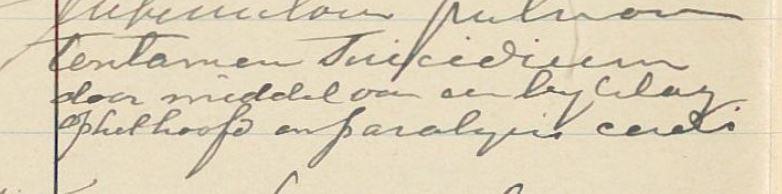 Tuberculosis pulmon
tentamen Suicidieum
door middel van een bijlslag
op het hoofd en paralysis cordis